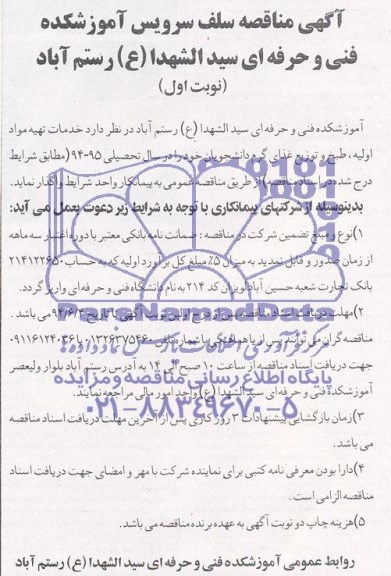 آگهی مناقصه سلف سرویس آموزشکده
فنی و حرفه ای سید الشهدا (ع) رستم آباد
(نوبت اول)
آموزشکده فنی و حرفه ای سید الشهدا (ع) رستم آباد در نظر دارد خدمات تهیه مواد
اولیه ، طبخ و توزیع غذای گرم دانشجویان خود را در سال تحصیلی ۹۵-۹۴ (مطابق شرایط
درج شده در اسناد مناقصه) از طریق مناقصه عمومی به پیمانکار واجد شرایط واگذار نماید.
بدینوسیله از شرکتهای پیمانکاری با توجه به شرایط زیر دعوت بعمل می آید:
۱)نوع و مبلغ تضمین شرکت در مناقصه : ضمانت نامه بانکی معتبر با دوره اعتبار سه ماهه
از زمان صدور و قابل تمدید به میزان ۵٪ مبلغ کل برآورد اولیه که به حساب ۲۱۴۱۲۲۶۵۰
بانک تجارت شعبه حسین آباد لویزان کد ۲۱۴ به نام دانشگاه فنی و حرفه ای واریز گردد.
۲)مهلت دریافت اسناد مناقصه پس از درج اولین نوبت آگهی تا تاریخ می باشد .
مناقصه گران می توانند پس از هماهنگی با شماره تلفن
جهت دریافت اسناد مناقصه از ساعت ۱۰ صبح الی ۱۴ به آدرس رستم آباد بلوار ولیعصر
آموزشکده فنی و حرفه ای سید الشهدا (ع) واحد امور مالی مراجعه نمایند.
۳)زمان بازگشایی پیشنهادات ۳ روز کاری پس از آخرین مهلت دریافت اسناد مناقصه
می باشد.
۴)دارا بودن معرفی نامه کتبی برای نماینده شرکت با مهر و امضای جهت دریافت اسناد
مناقصه الزامی است .
۵)هزینه چاپ دو نوبت آگهی به عهده برنده مناقصه می باشد.
روابط عمومی آموزشکده فنی و حرفه ای سید الشهدا (ع) رستم آباد
ParsNamadData
مرکز فرآوری اطلاعات پارس نماد داده ها
پایگاه اطلاع رسانی مناقصه و مزایده
۰۲۱-۸۸۳۴۹۶۷۰-۵